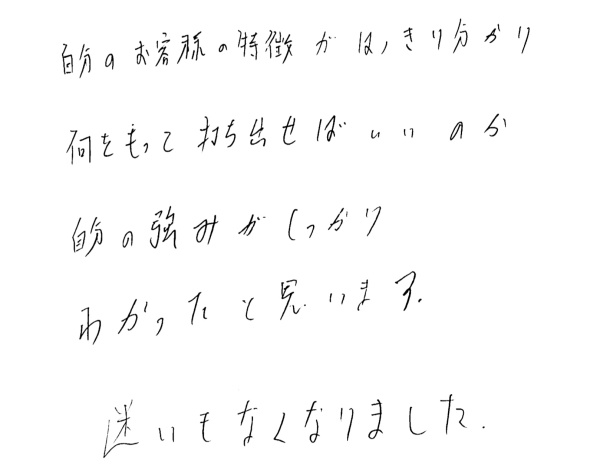 自分のお客様の特徴がはっきり分かり
何をもって打ち出せばいいのか
自分の強みがしっかり
わかったと思います.
迷いもなくなりました.